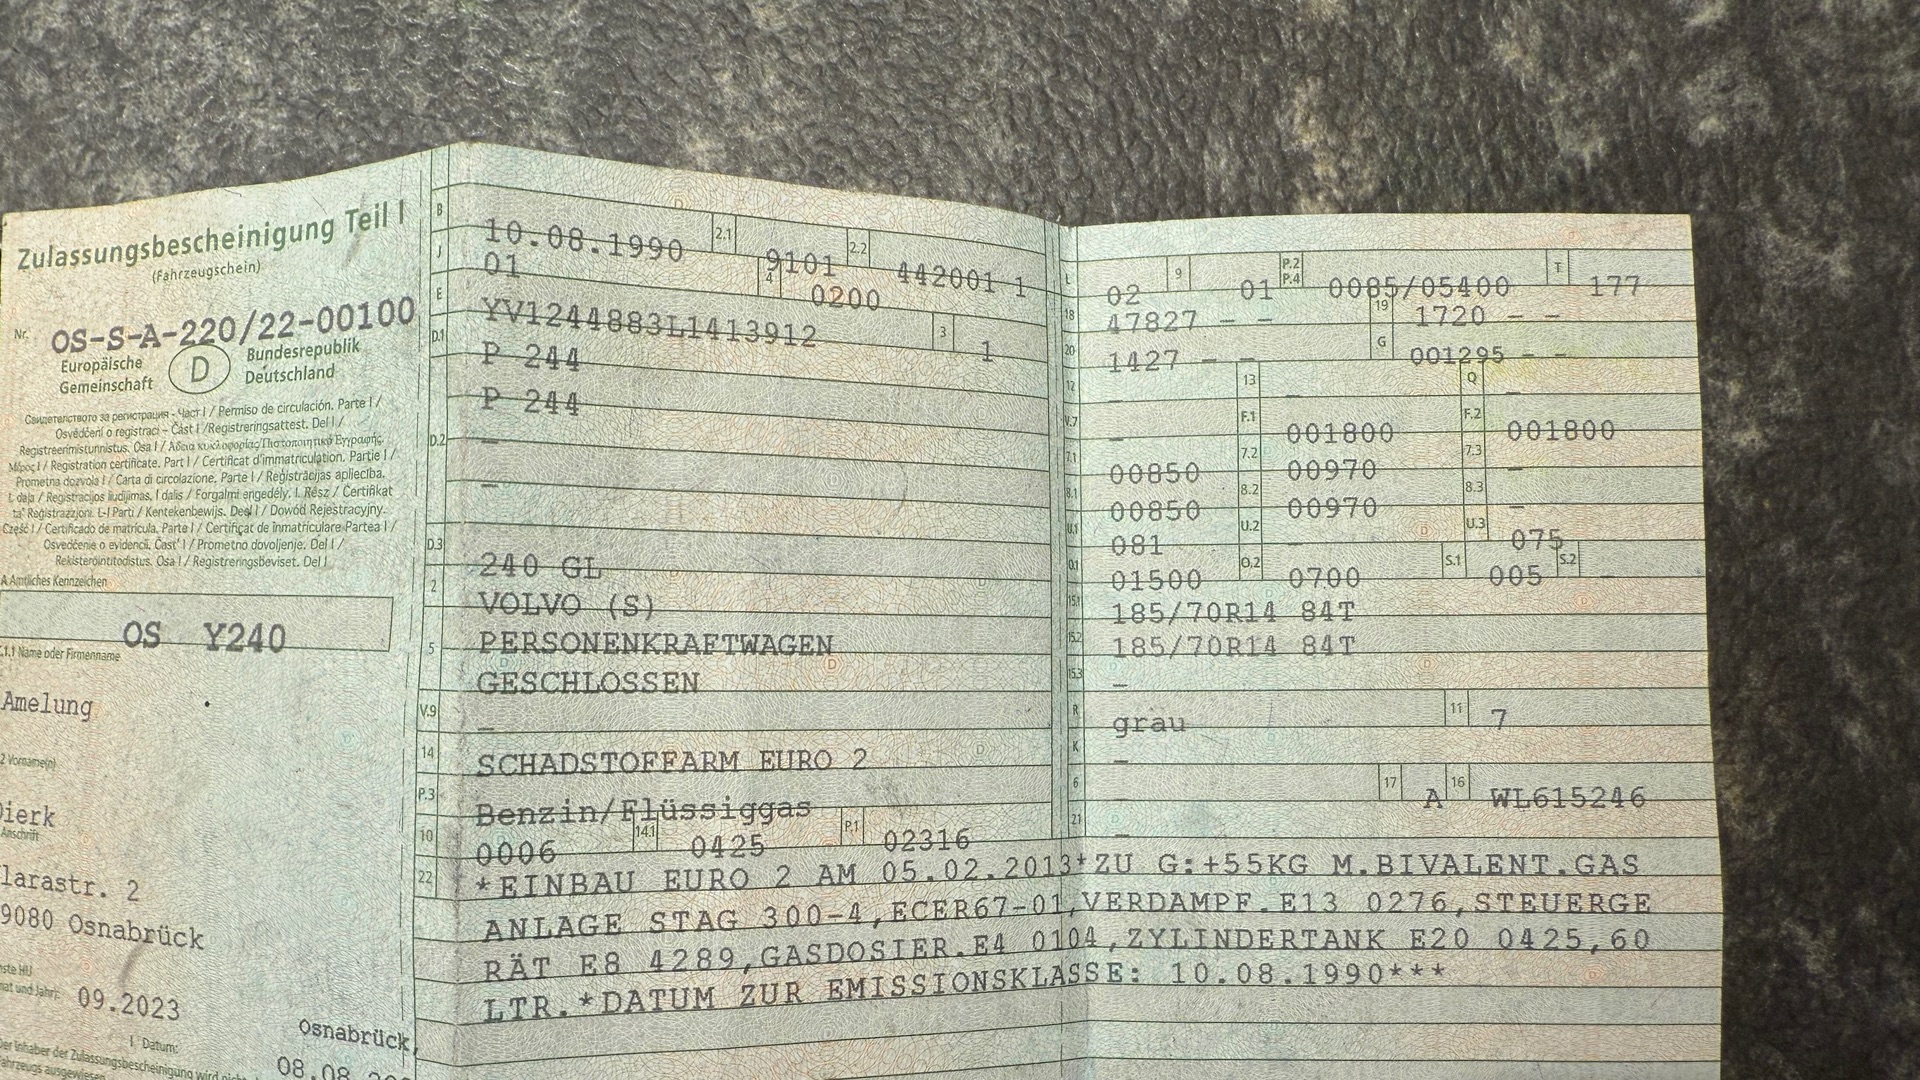 Zulassungsbescheinigung Teil I
(Fahrzeugschein)
Nr. OS-S-A-220/22-00100
Europäische Gemeinschaft
D
Bundesrepublik Deutschland
Свидетелство за регистрация - Част I / Permiso de circulación. Parte I /
Osvědčení o registraci – Část I / Registreringsattest. Del I /
Registreerimistunnistus. Osa I / Άδεια κυκλοφορίας/Πιστοποιητικό Εγγραφής.
Μέρος I / Registration certificate. Part I / Certificat d'immatriculation. Partie I /
Prometna dozvola I / Carta di circolazione. Parte I / Reģistrācijas apliecība.
I. daļa / Registracijos liudijimas. I dalis / Forgalmi engedély. I. Rész / Ċertifikat
ta' Reġistrazzjoni. L-I Parti / Kentekenbewijs. Deel I / Dowód Rejestracyjny.
Część I / Certificado de matrícula. Parte I / Certificat de înmatriculare Partea I /
Osvedčenie o evidencii. Časť I / Prometno dovoljenje. Del I /
Rekisteröintitodistus. Osa I / Registreringsbeviset. Del I
A Amtliches Kennzeichen
OS Y240
C.1.1 Name oder Firmenname
Amelung
2 Vorname(n)
Anschrift
9080 Osnabrück
HU
09.2023
I Datum:
Osnabrück,
08.08
der Inhaber der Zulassungsbescheinigung wird
ausgewiesen
B 10.08.1990 2.1 9101 2.2 442001 1
J 01 4 0200
E YV1244883L1413912 3 1
D.1 P 244
P 244
D.2 –
–
D.3 240 GL
2 VOLVO (S)
5 PERSONENKRAFTWAGEN
GESCHLOSSEN
V.9 –
14 SCHADSTOFFARM EURO 2
P.3 Benzin/Flüssiggas
10 0006 14.1 0425 P.1 02316
L 02 9 01 P.2 P.4 0085/05400 T 177
18 47827 – – 19 1720 – –
20 1427 – – G 001295 – –
12 – 13 – Q –
V.7 – F.1 001800 F.2 001800
7.1 00850 7.2 00970 7.3 –
8.1 00850 8.2 00970 8.3 –
U.1 081 U.2 U.3 075
O.1 01500 O.2 0700 S.1 005 S.2 –
15.1 185/70R14 84T
15.2 185/70R14 84T
15.3 –
R grau 11 7
K –
6 – 17 A 16 WL615246
21 –
22 *EINBAU EURO 2 AM 05.02.2013*ZU G:+55KG M.BIVALENT.GAS
ANLAGE STAG 300-4,ECER67-01,VERDAMPF.E13 0276,STEUERGE
RÄT E8 4289,GASDOSIER.E4 0104,ZYLINDERTANK E20 0425,60
LTR.*DATUM ZUR EMISSIONSKLASSE: 10.08.1990***